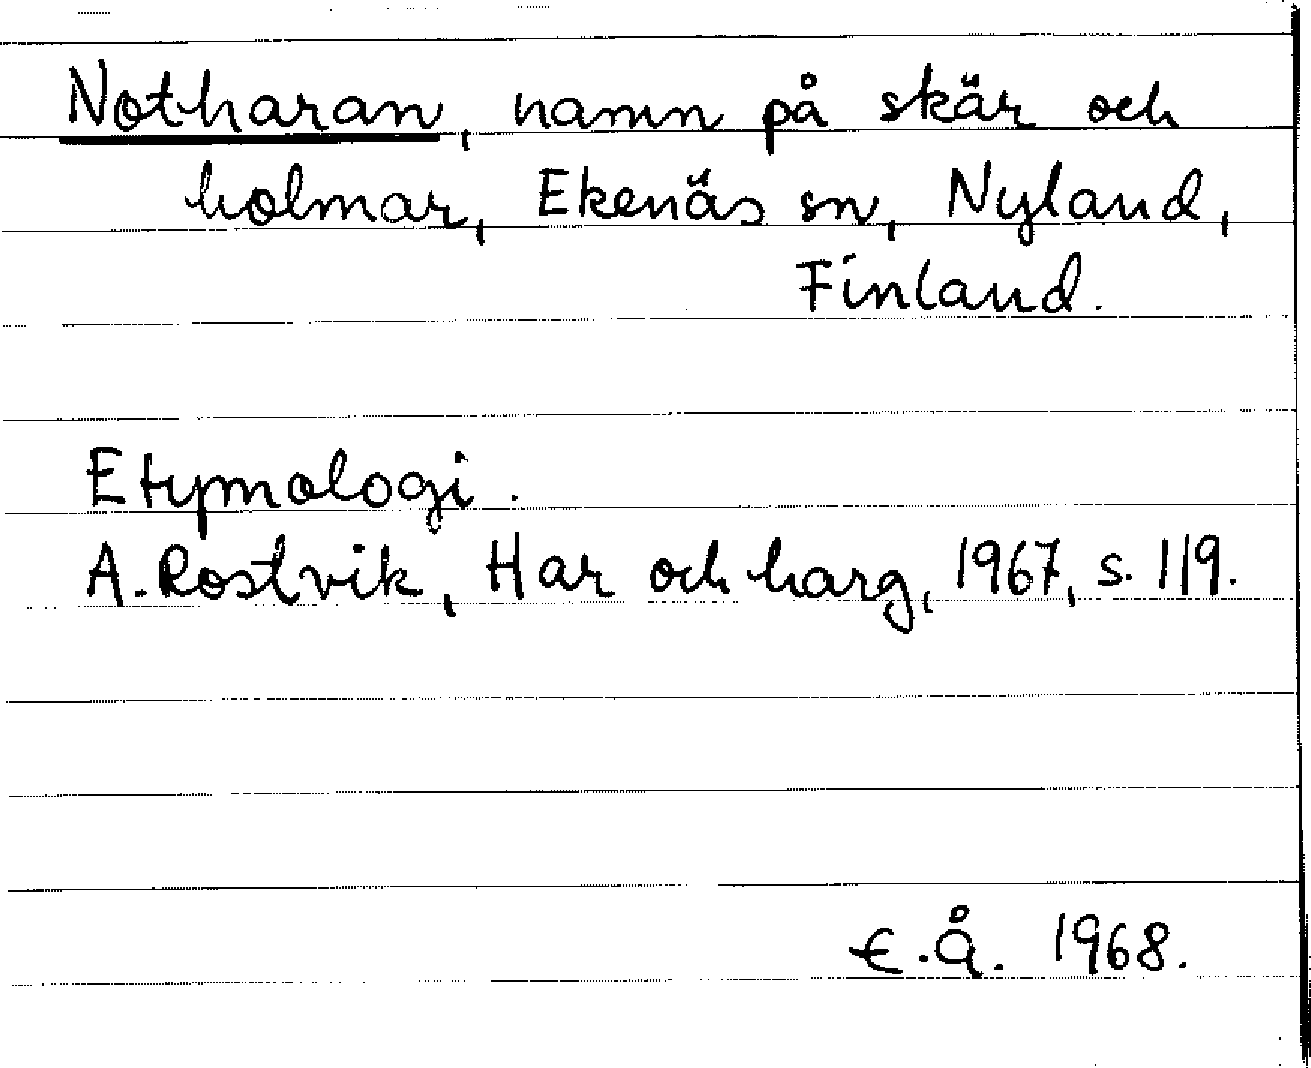 Notharan, namn på skär och
holmar, Ekenäs sn, Nyland,
Finland.
Etymologi.
A. Rostvik, Har och harg, 1967, s. 119.
E.Å. 1968.